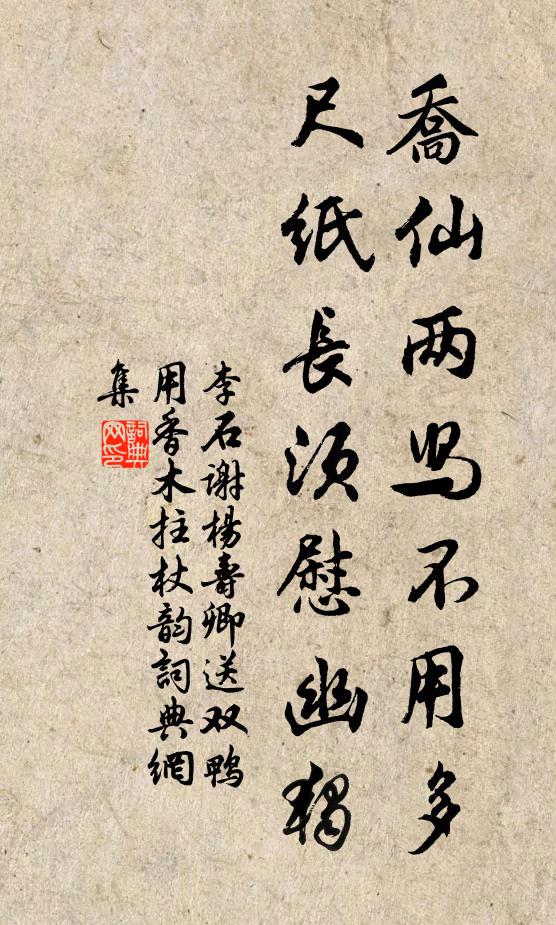 喬仙两舄不用多
尺紙長須慰幽獨
李石謝楊壽卿送双鴨
用香木拄杖韵詞典網
集
詞典
网印